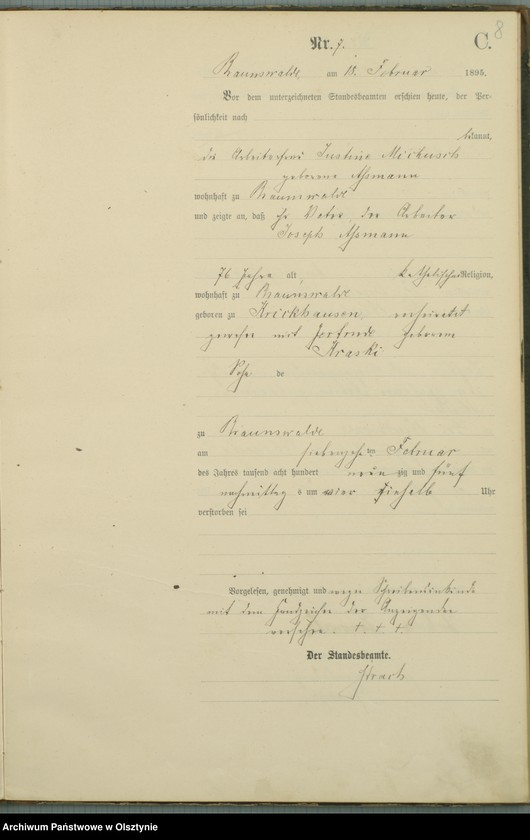 8
Nr. 7. C.
Braunswalde, am 18. Februar 1895.
Vor dem unterzeichneten Standesbeamten erschien heute, der Per-
sönlichkeit nach
bekannt,
die Arbeiterfrau Justine
geborene Aßmann
wohnhaft zu Braunswalde
und zeigte an, daß ihr Vater, der Arbeiter
Joseph Aßmann
76 Jahre alt, katholischer Religion,
wohnhaft zu Braunswalde
geboren zu Krickhausen, verheiratet
gewesen mit Gertrude geborene
Kraski
Sohn de
zu Braunswalde
am siebenzehnten Februar
des Jahres tausend acht hundert neunzig und fünf
nachmittags um vier Uhr
verstorben sei
Vorgelesen, genehmigt und wegen Schreibensunkunde
mit dem Handzeichen der Anzeigenden
versehen. + + +
Der Standesbeamte.
Archiwum Państwowe w Olsztynie